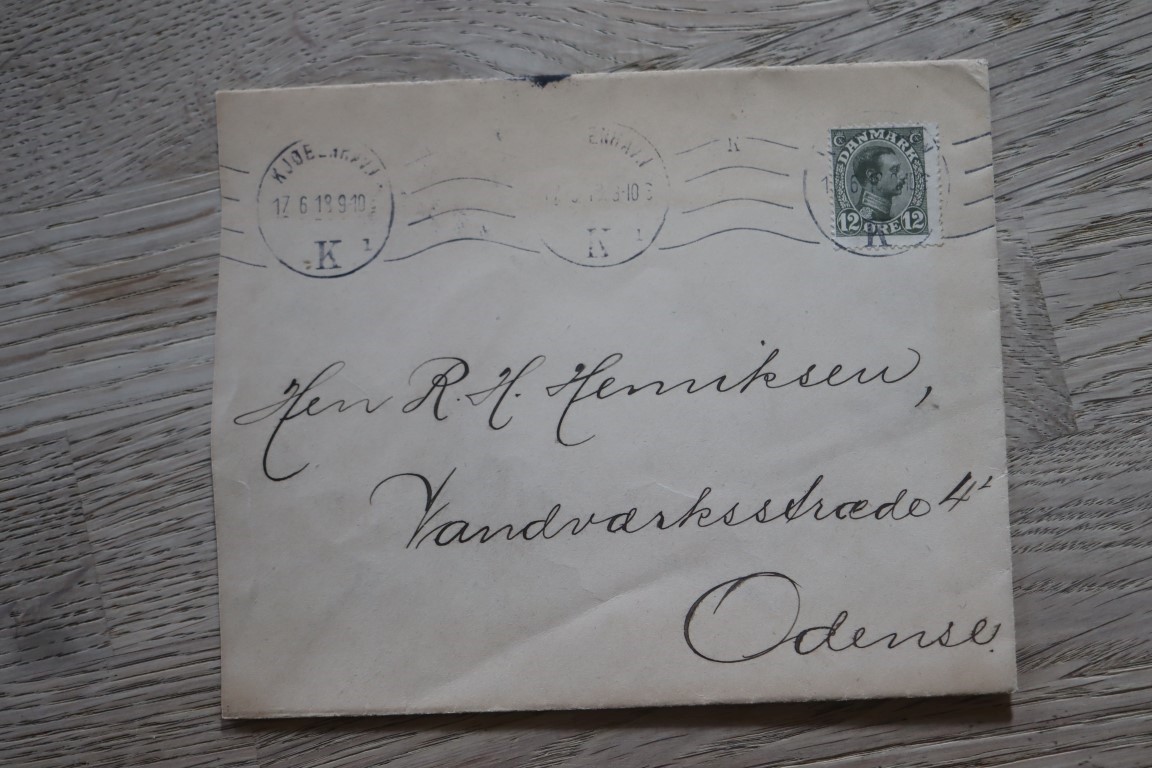 KJØBENHAVN
17.6.18.9-10
K 1
ENHAVN
8-10
K 1
K
DANMARK
12 ØRE 12
K
Herr R. H. Henriksen,
Vandværksstræde 4¹
Odense.